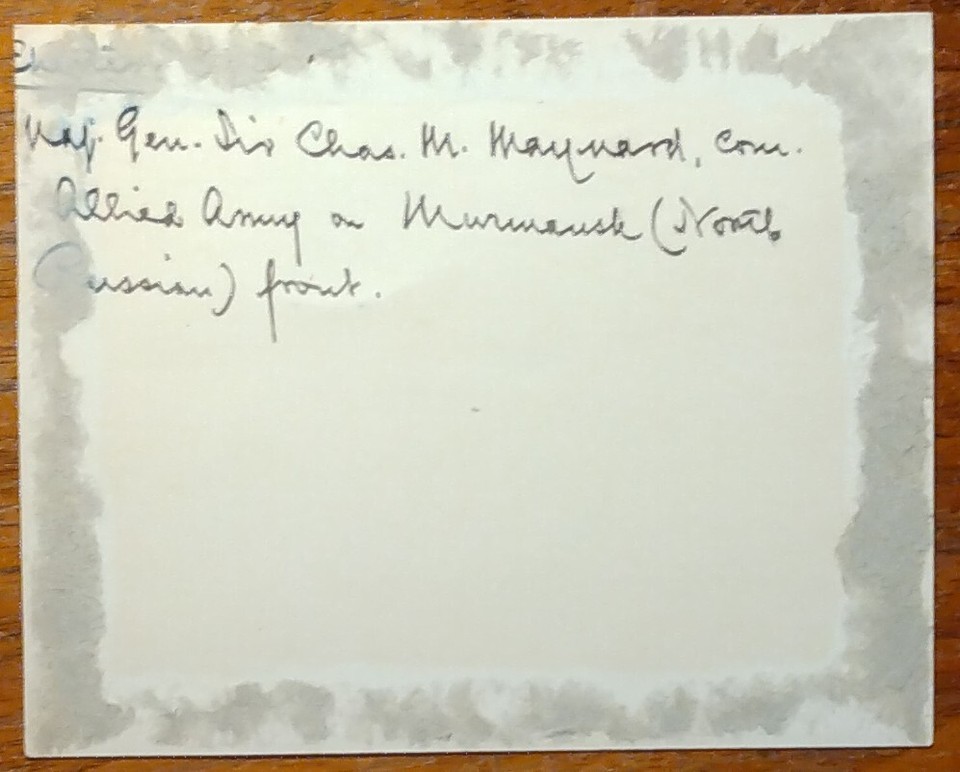 Maj. Gen. Sir Chas. M. Maynard, com.
Allied Army on Murmansk (North
Russian) front.